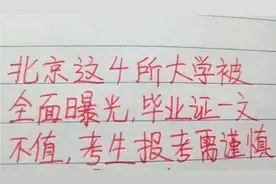 北京这4所大学被
全面曝光,毕业证一文
不值,考生报考需谨慎